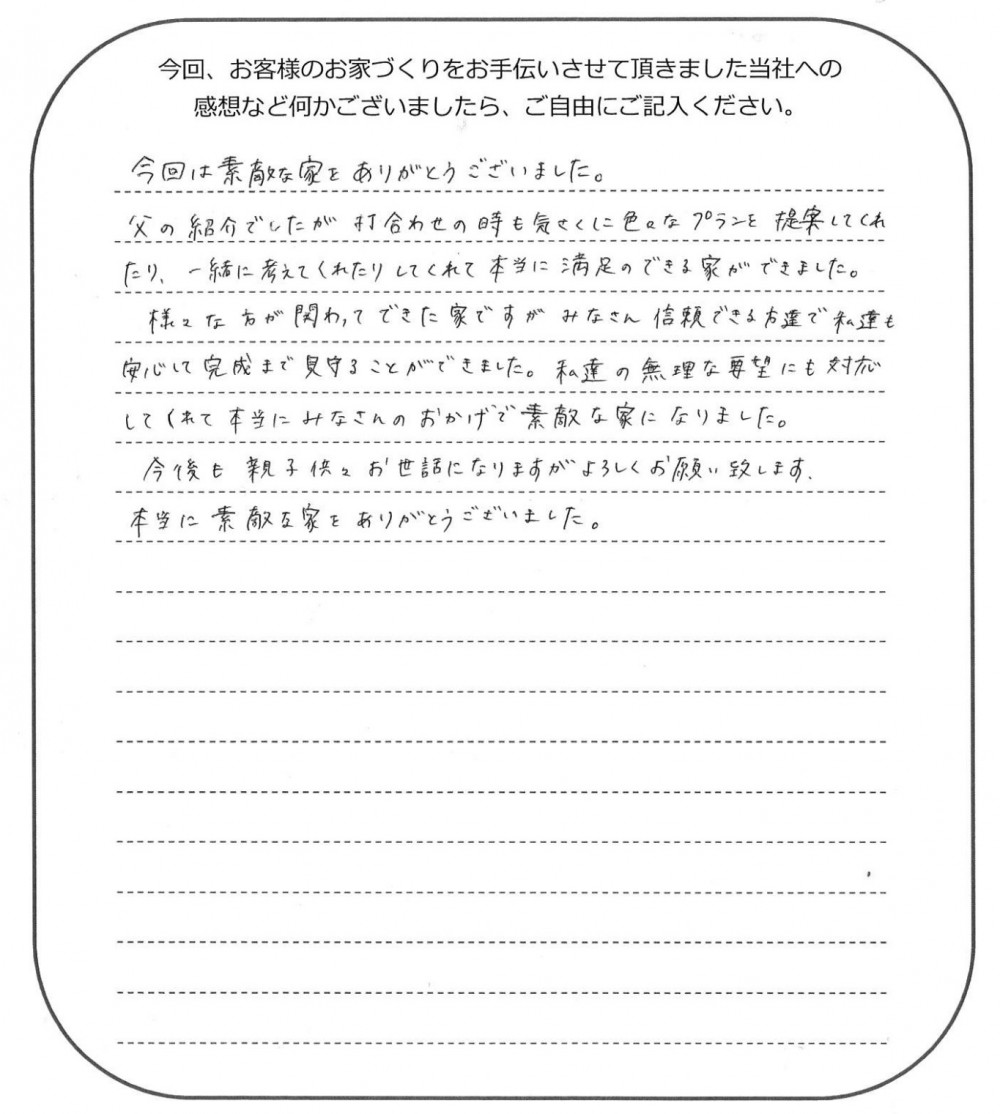 今回、お客様のお家づくりをお手伝いさせて頂きました当社への
感想など何かございましたら、ご自由にご記入ください。
今回は素敵な家をありがとうございました。
父の紹介でしたが 打合わせの時も気さくに色々なプランを提案してくれ
たり、一緒に考えてくれたりしてくれて本当に満足のできる家ができました。
様々な方が関わってできた家ですがみなさん信頼できる方達で私達も
安心して完成まで見守ることができました。私達の無理な要望にも対応
してくれて本当にみなさんのおかげで素敵な家になりました。
今後も親子供々お世話になりますがよろしくお願い致します、
本当に素敵な家をありがとうございました。